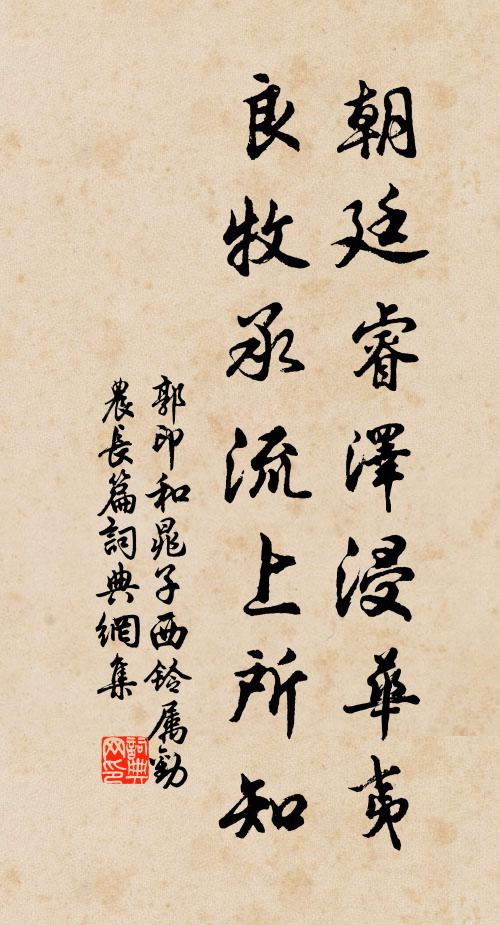 朝廷睿澤浸華夷
良牧承流上所知
郭印和晁子西鈴属勸
農長篇詞典網集
詞典网印